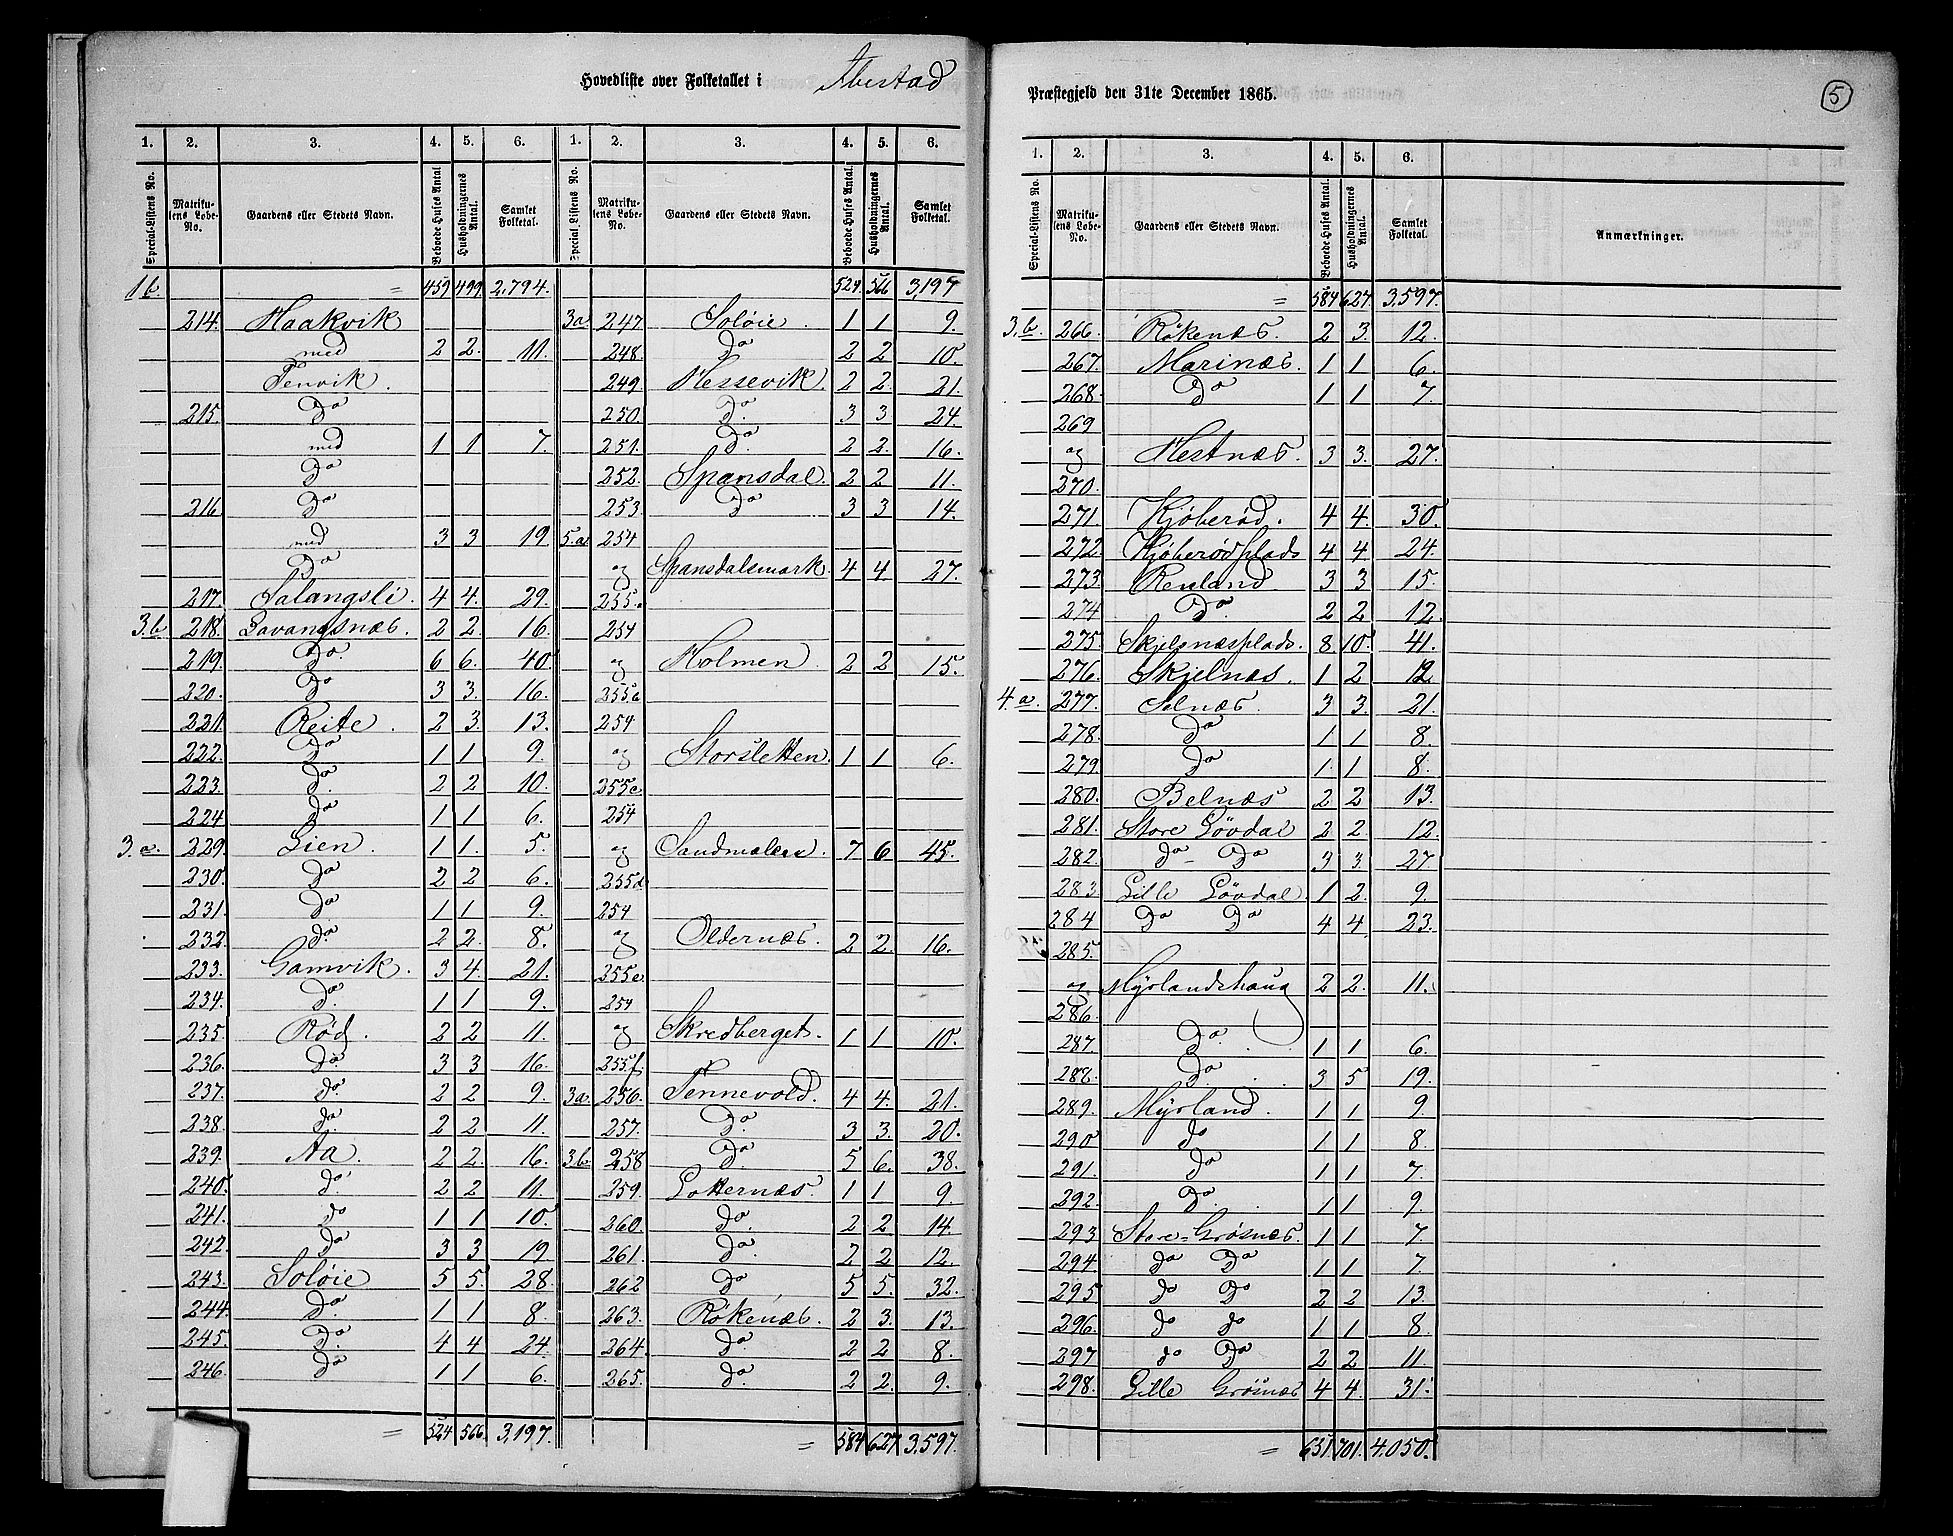 Hovedliste over Folketallet i Ibestad
1. 2. 3. 4. 5. 6. 1. 2. 3. 4. 5. 6.
Special-Listens No. Matrikulens Løbe-No. Gaardens eller Stedets Navn. Beboede Huses Antal. Husholdningernes Antal. Samlet Folketal. Special-Listens No. Matrikulens Løbe-No. Gaardens eller Stedets Navn. Beboede Huses Antal. Husholdningernes Antal. Samlet Folketal.
1b. = 459 499 2,794.
214. Haakvik
med 2 2. 11.
Tenvik.
215. Do
med 1 1 7.
Do
216 Do
med 3 3 19
Do
217. Salangsli. 4 4. 29.
3.b 218. Lavangsnæs. 2 2. 16.
219. Do. 6 6. 40.
220. Do 3 3. 16.
221. Reite. 2 3. 13.
222. Do 1 1 9.
223. do. 2 2 10.
224. do 1 1 6.
3.a. 229. Lien. 1 1. 5.
230. do 2 2 6.
231. do 1 1 9.
232. do. 2 2. 8.
233. Gamvik. 3 4. 21.
234. Do. 1 1 9.
235. Rød. 2 2 11.
236. Do. 3 3 16.
237. do. 2 2 9.
238. do. 2 2 11.
239. Aa. 2 2. 16.
240. do. 2 2 11.
241. do 1 1 10.
242. do 3 3 19
243. Soløie 5 5. 28.
244. do. 1 1 8.
245. Do. 4 4 24.
246. do 1 1 6.
= 524 566. 3,197.
524. 566 3,197
3a 247 Soløie. 1 1 9.
248. Do 2 2 10.
249 Hessevik. 2 2. 21.
250. Do. 3 3 24.
251. Do. 2 2. 16.
252. Spansdal. 2 2 11.
253. Do 3 3 14.
5.a 254
og Spansdalsmark. 4 4. 27.
255.
254
og Holmen. 2 2 15.
255
254
og Storsletten. 1 1 6.
255c.
254
og 7 6 45.
255d
254
og Oldernæs. 2 2. 16.
255e
254
og Skredberget. 1 1 10.
255f.
3a. 256. Tennevold. 4 4. 21.
257. Do. 3 3. 20.
3b. 258 Do. 5 6. 38.
259. Lotternæs. 1 1 9.
260. do. 2 2. 14.
261. do. 2 2 12.
262 do 5 5. 32.
263. Røkenæs. 2 3. 13.
264. do. 2 2 8.
265. do. 2 2. 9.
= 584 627 3,597.
Præstegjeld den 31te December 1865.
5
1. 2. 3. 4. 5. 6.
Special-Listens No. Matrikulens Løbe-No. Gaardens eller Stedets Navn. Beboede Huses Antal. Husholdningernes Antal. Samlet Folketal. Anmærkninger.
= 584 627. 3,597.
3.b. 266. Røkenæs. 2 3. 12.
267. Marinæs. 1 1 6.
268. Do 1 1 7.
269
og Hestnæs. 3 3. 27.
270.
271. Kjøberød. 4 4. 30.
272. Kjøberødplads 4 4 24.
273 Renland 3 3 15.
274 Do. 2 2 12.
275. Skjelnæsplads. 8 10. 41.
276. Skjelnæs. 1 2 12
4.a. 277. Selnæs. 3 3. 21.
278. Do 1 1 8.
279. Do 1 1 8.
280. Belnæs 2 2 13.
281. Store Løvdal 2 2. 12.
282. do - Do 3 3. 27
283. Lille Løvdal. 1 2. 9.
284 Do Do 4 4. 23.
285.
og Myrlandshaug 2 2. 11.
286.
287. Do. 1 1 6.
288. Do. 3 5 19.
289. Myrland. 1 1 9.
290 do 1 1 8.
291. do 1 1 7.
292. Do. 1 1 9.
293 Store-Grøsnæs. 1 1 7
294. do Do 1 1 7.
295 do Do 2 2 13.
296. do do 1 1 8.
297 do Do 2 2 11.
298. Lille Grøsnæs 4 4. 31.
= 651. 701. 4,050.